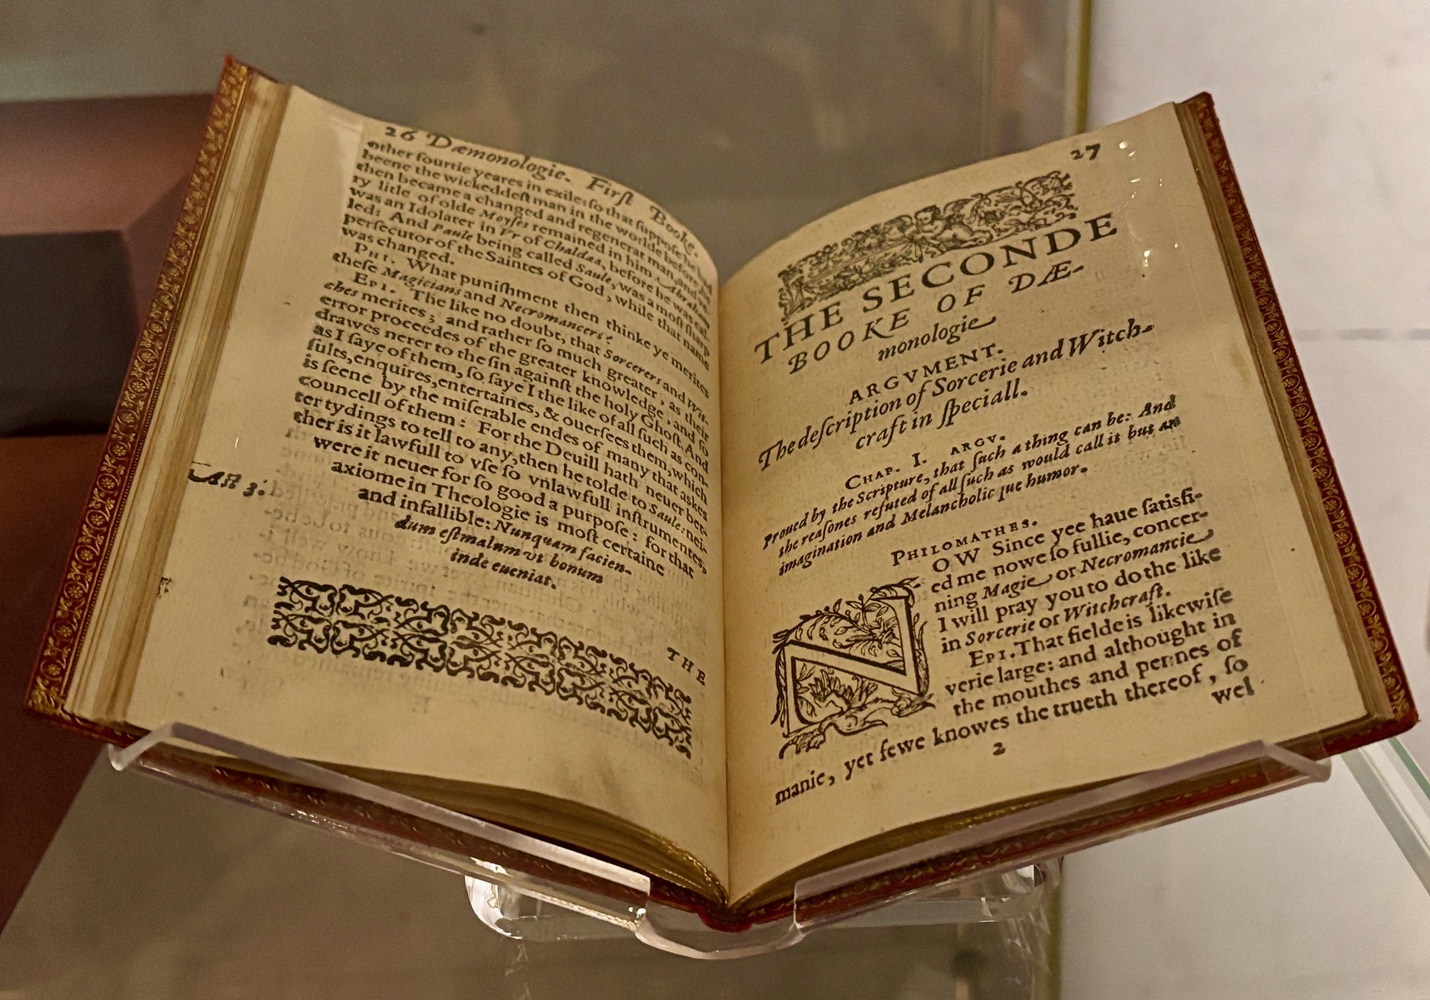 26 Dæmonologie. First Booke.
other fourtie yeares in exile: so that suppose he had
beene the wickeddest man in the worlde before, he
then became a changed and regenerat man, and ve-
ry litle of olde Moyses remained in him. Abraham
was an Idolater in Vr of Chaldæa, before he was cal-
led: And Paule being called Saule, was a most sharp
persecutor of the Saintes of God, while that name
was changed.
PHI. What punishment then thinke ye merites
these Magicians and Necromancers?
EPI. The like no doubt, that Sorcerers and Wit-
ches merites; and rather so much greater, as their
error proceedes of the greater knowledge, and so
drawes nerer to the sin against the holy Ghost. And
as I saye of them, so saye I the like of all such as con-
sults, enquires, entertaines, & ouersees them, which
is seene by the miserable endes of many that askes
councell of them: For the Deuill hath neuer bet-
ter tydings to tell to any, then he tolde to Saule: nei-
ther is it lawfull to vse so vnlawfull instrumentes,
were it neuer for so good a purpose: for that
axiome in Theologie is most certaine
and infallible: Nunquam facien-
dum est malum vt bonum
inde eueniat.
3:
THE
27
THE SECONDE
BOOKE OF DÆ-
monologie
ARGVMENT.
The description of Sorcerie and Witch-
craft in speciall.
CHAP. I. ARGV.
Proued by the Scripture, that such a thing can be: And
the reasones refuted of all such as would call it but an
imagination and Melancholicque humor.
PHILOMATHES.
NOW Since yee haue satisfi-
ed me nowe so fullie, concer-
ning Magie or Necromancie
I will pray you to do the like
in Sorcerie or Witchcraft.
EPI. That fielde is likewise
verie large: and althought in
the mouthes and pennes of
manie, yet fewe knowes the trueth thereof, so
2 wel